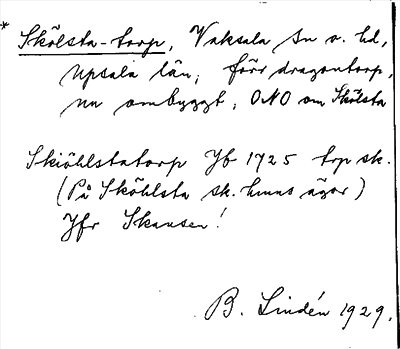 * Skölsta-torp, Vaksala sn o. hd,
Upsala län, förr dragontorp,
nu ombyggt, ONO om Skölsta
Skiöhlstatorp Jb 1725 trp sk.
(På Sköhlsta sk. hmns ägor)
Jfr Skansen!
B. Lindén 1929.